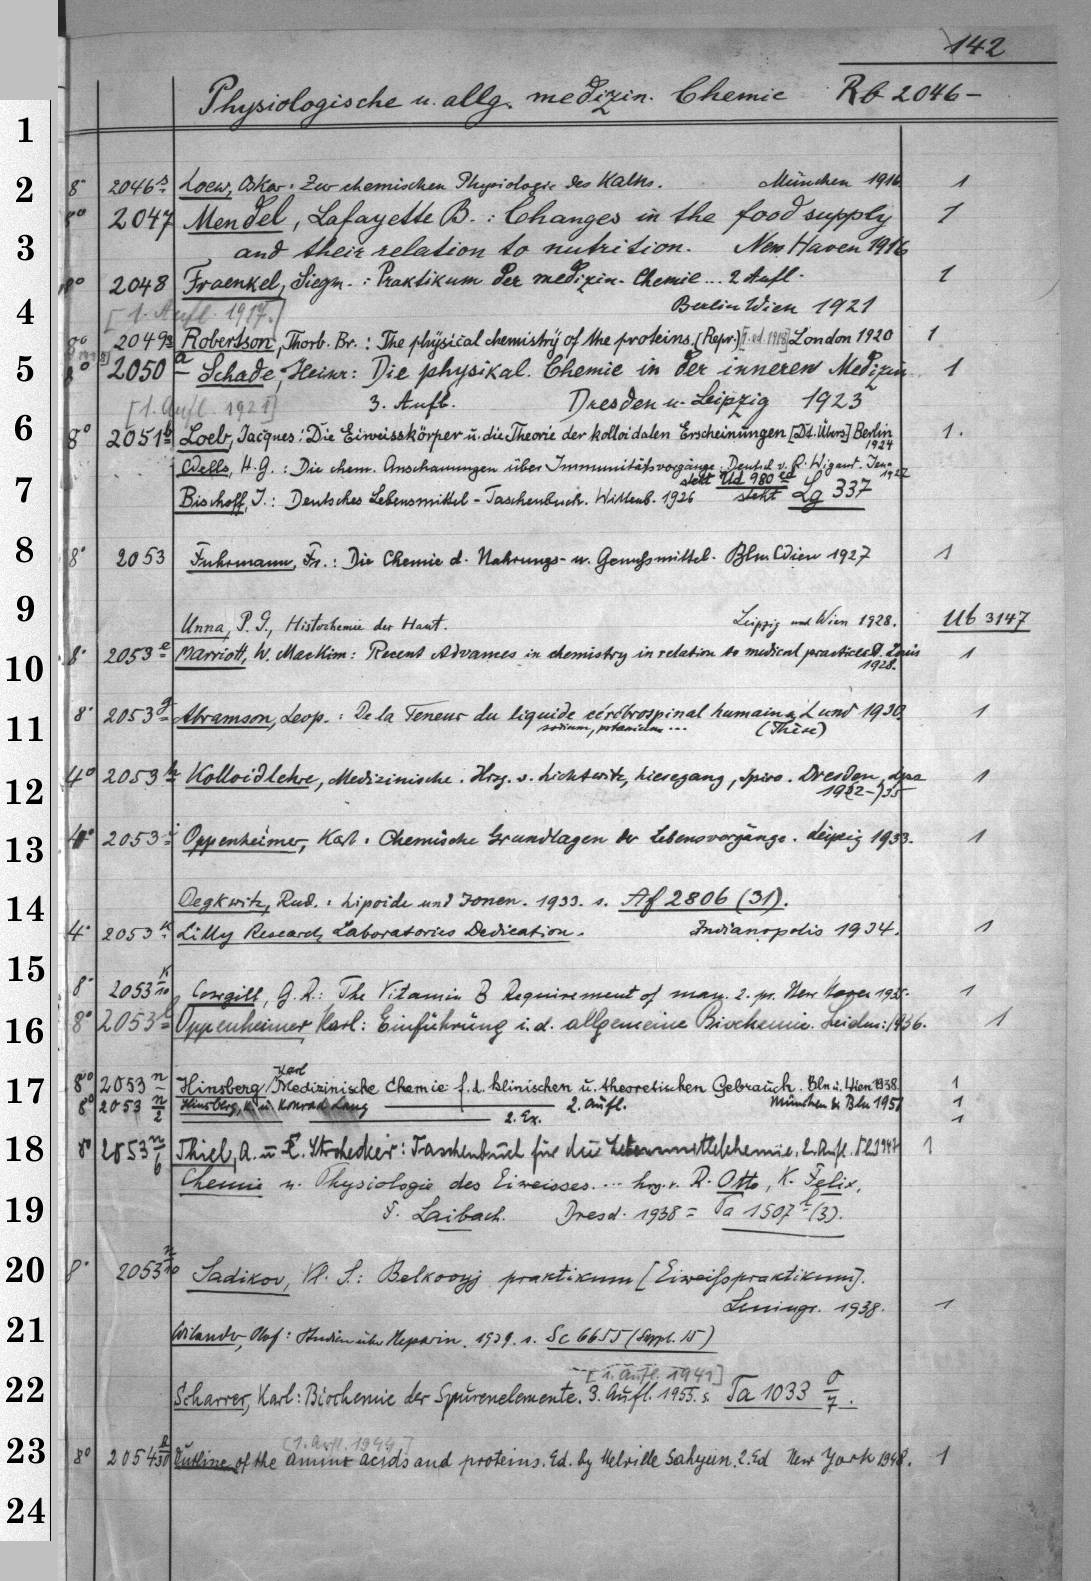 142
Physiologische u. allg. medizin. Chemie Rb 2046-
1
2
3
4
5
6
7
8
9
10
11
12
13
14
15
16
17
18
19
20
21
22
23
24
8° 2046 a Loew, Oskar: Zur chemischen Physiologie des Kalks. München 1916 1
8° 2047 Mendel, Lafayette B.: Changes in the food supply 1
and their relation to nutrition. New Haven 1916
8° 2048 Fraenkel, Siegm.: Praktikum der medizin. Chemie... 2 Aufl. 1
[1. Aufl. 1917.] Berlin Wien 1921
8° 2049 a Robertson, Thorb. Br.: The physical chemistry of the proteins. (Repr.) [1. ed. 1918] London 1920 1
8° 2050 a Schade, Heinr: Die physikal. Chemie in der inneren Medizin 1
[1. Aufl. 1921] 3. Aufl. Dresden u. Leipzig 1923
8° 2051 b Loeb, Jacques: Die Eiweisskörper u. die Theorie der kolloidalen Erscheinungen [Dt. Übers] Berlin 1924 1.
Wells, H. G.: Die chem. Anschauungen über Immunitätsvorgänge. Deutsch v. R. Wigand. Jena 1927
steht Ud 980 ed
Bischoff, J.: Deutsches Lebensmittel-Taschenbuch. Wittenb. 1926 steht Lg 337
8° 2053 Fuhrmann, Fr.: Die Chemie d. Nahrungs- u. Genußmittel. Bln. Wien 1927 1
Unna, P. G., Histochemie der Haut. Leipzig und Wien 1928. Ub 3147
8° 2053 e Marriott, W. MacKim: Recent Advances in chemistry in relation to medical practice St. Louis 1928. 1
8° 2053 g Abramson, Leop.: De la Teneur du liquide cérébrospinal humain Lund 1930. 1
sodium, potassium... (Thèse)
4° 2053 h Kolloidlehre, Medizinische. Hrsg. v. Lichtwitz, Liesegang, Spiro. Dresden, Lpz 1
1932-)35
4° 2053 i Oppenheimer, Karl: Chemische Grundlagen der Lebensvorgänge. Leipzig 1933. 1
Degkwitz, Rud.: Lipoide und Ionen. 1933. s. Af 2806 (31).
4° 2053 k Lilly Research Laboratories Dedication. Indianopolis 1934. 1
8° 2053 k/10 Cowgill, G. R.: The Vitamin B Requirement of man. 2. pr. New Haven 1935. 1
8° 2053 l Oppenheimer, Karl: Einführung i. d. allgemeine Biochemie. Leiden: 1936. 1
8° 2053 n Hinsberg, Karl Medizinische Chemie f. d. klinischen u. theoretischen Gebrauch. Bln u. Wien 1938. 1
8° 2053 n/2 Hinsberg, K. u. Konrad Lang 2. Aufl. München & Bln 1951 1
2. Ex. 1
8° 2053 n/6 Thiel, A. u. R. Strohecker: Taschenbuch für die Lebensmittelchemie. 2. Aufl. Bln 1947 1
Chemie u. Physiologie des Eiweisses... hrg. v. R. Otto, K. Felix,
F. Laibach. Dresd. 1938 = Ta 1507 (3).
8° 2053 n/10 Sadikov, Vl. S.: Belkovyj praktikum [Eiweißpraktikum].
Leningr. 1938. 1
Wilander, Olof: Studien über Heparin. 1939. s. Sc 6655 (Suppl. 15)
[1. Aufl. 1941]
Scharrer, Karl: Biochemie der Spurenelemente. 3. Aufl. 1955. s. Ta 1033 o/7.
[1. Aufl. 1944]
8° 2054 Outline of the amino acids and proteins. Ed. by Melville Sahyun. 2. Ed New York 1948. 1